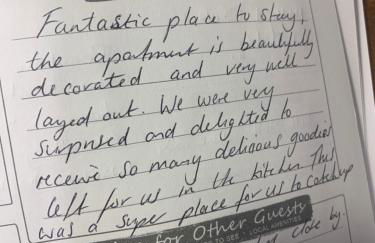 Fantastic place to stay,
the apartment is beautifully
decorated and very well
layed out. We were very
surprised and delighted to
receive so many delicious goodies
left for us in the kitchen This
was a super place for us to catchup
for Other Guests
TO SEE LOCAL AMENITIES
close by.